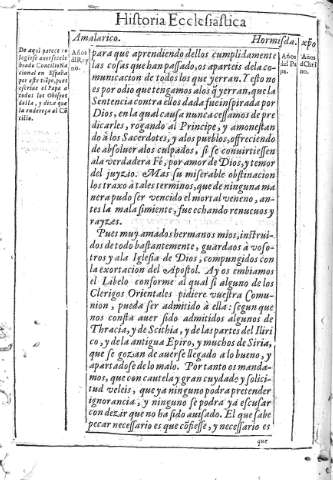 Historia Ecclesiastica
Amalarico.
Hormisda.
xp̄o
De aqui parece
Años
del R.
no.
Años
del Pa
no.
Años
dChri
no.
cional en España
por este tiẽpo, pues
escriue el Papa a
todos los Obispos
della, y dize que
para que aprendiendo dellos cumplidamente
las cosas que han passado, os aparteis dela co-
municacion de todos los que yerran. Y esto no
es por odio que tengamos alos q̃ yerran, que la
Sentencia contra ellos dada fue inspirada por
Dios, en la qual causa nunca cessamos de pre
dicarles, rogando al Principe, y amonestan
do à los Sacerdotes, y alos pueblos, offreciendo
de absoluer alos culpados, si se conuirtiessen
ala verdadera Fé, por amor de Dios, y temor
del juyzio. Mas su miserable obstinacion
los traxo à tales terminos, que de ninguna ma
nera pudo ser vencido el mortal veneno, an-
tes la mala simiente, fue echando renueuos y
rayzes.
Pues muy amados hermanos mios, instrui-
dos de todo bastantemente, guardaos à voso-
tros y ala Iglesia de Dios, compungidos con
la exortacion del Apostol. Ay os embiamos
el Libelo conforme al qual si alguno de los
Clerigos Orientales pidiere vuestra Comu-
nion, pueda ser admitido à ella: segun que
nos consta auer sido admitidos algunos de
Thracia, y de Scithia, y de las partes del Iliri
co, y de la antigua Epiro, y muchos de Siria,
que se gozan de auerse llegado a lo bueno, y
apartadose de lo malo. Por tanto es manda-
mos, que con cautela y gran cuydado y solici-
tud veleis, que ya ninguno podra pretender
ignorancia, y ninguno se podra ya escusar
con dezir que no ha sido auisado. El que sabe
pecar necessario es que cõfiesse, y necessario es
que